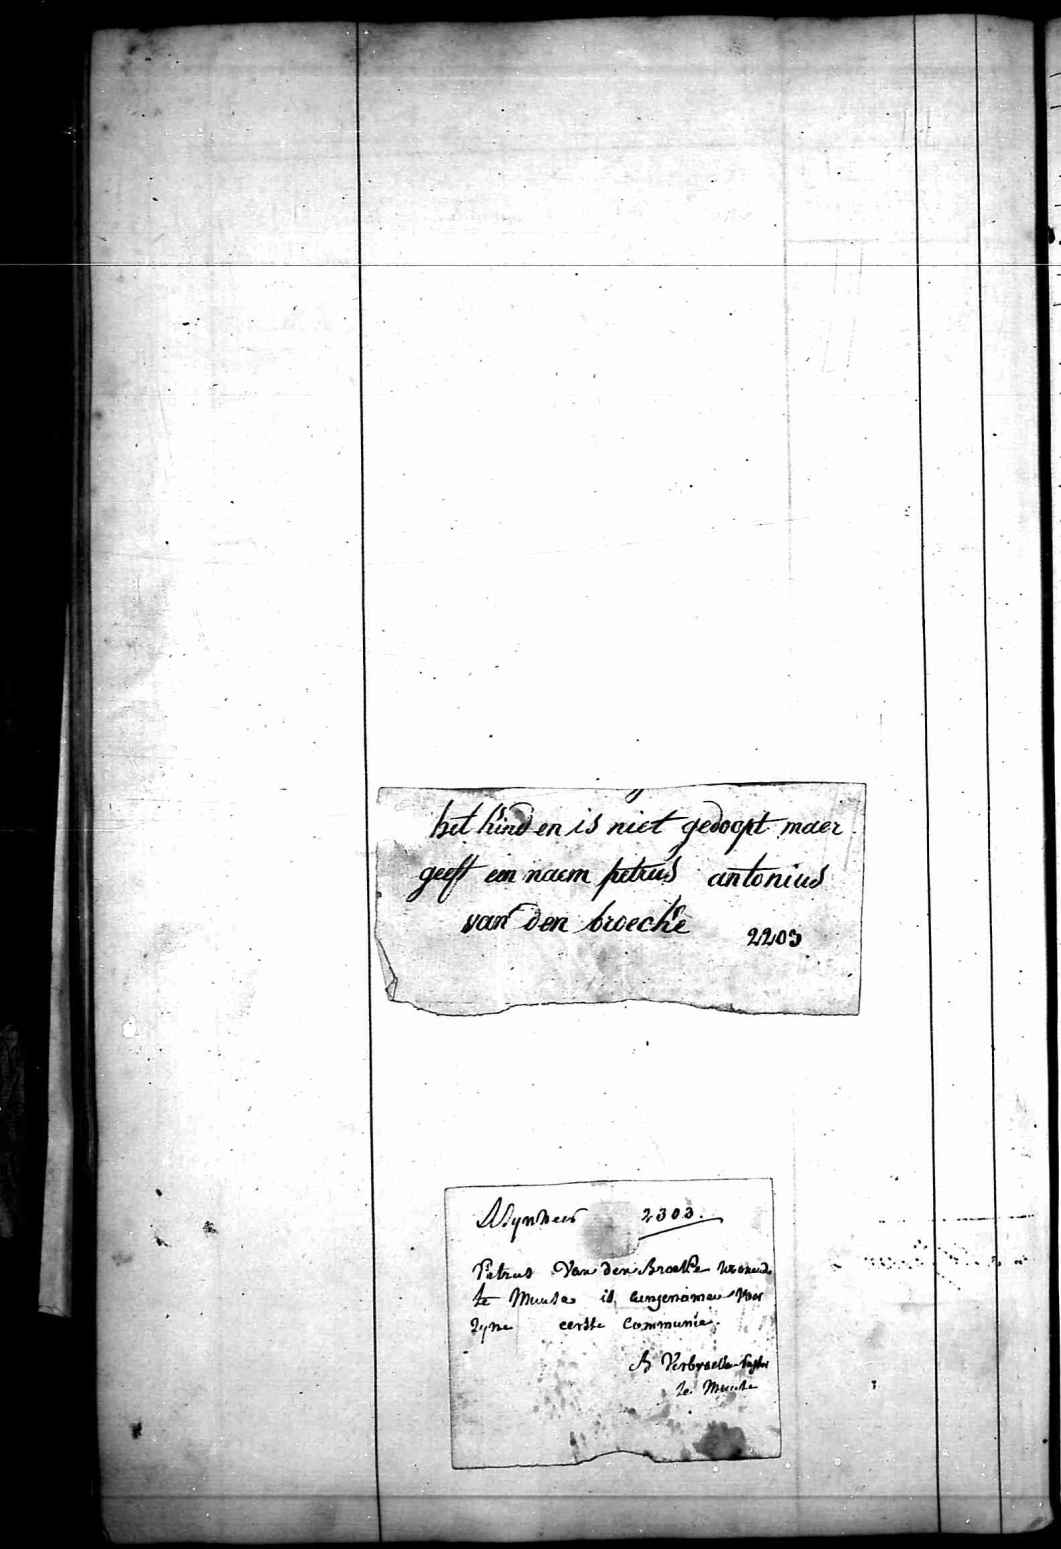 het kind en is niet gedoopt maer
geeft een naem petrus antonius
van den broecke 2203
Mynheer 2303.
Petrus Van den Broecke woonende
te Munte is aengenomen voor
zyne eerste Communie.
Verbraecke
te Munte